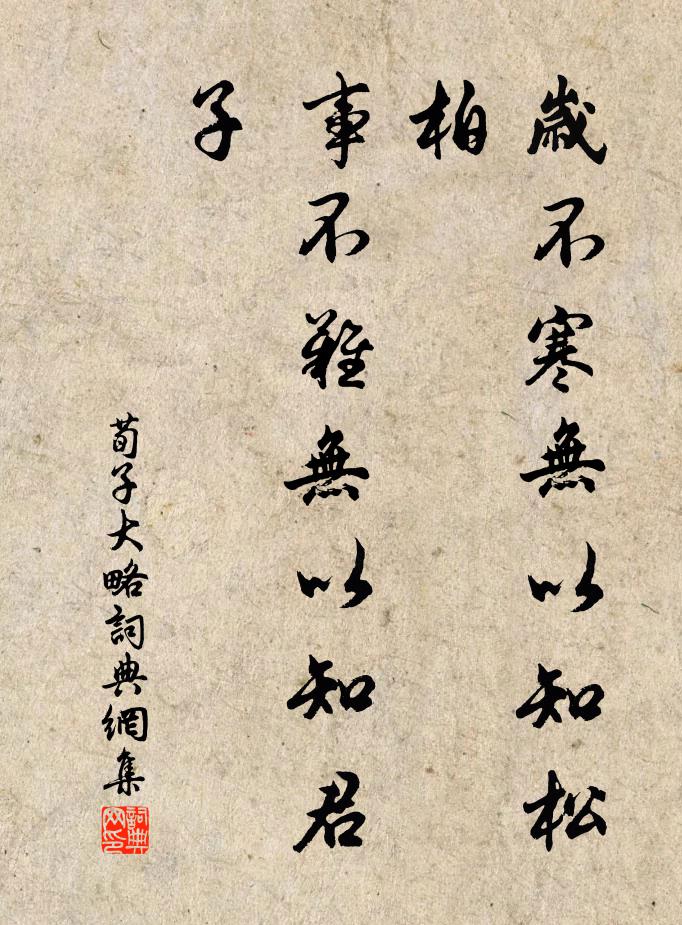 歲不寒無以知松
柏
事不難無以知君
子
荀子大略詞典網集
詞典
网印